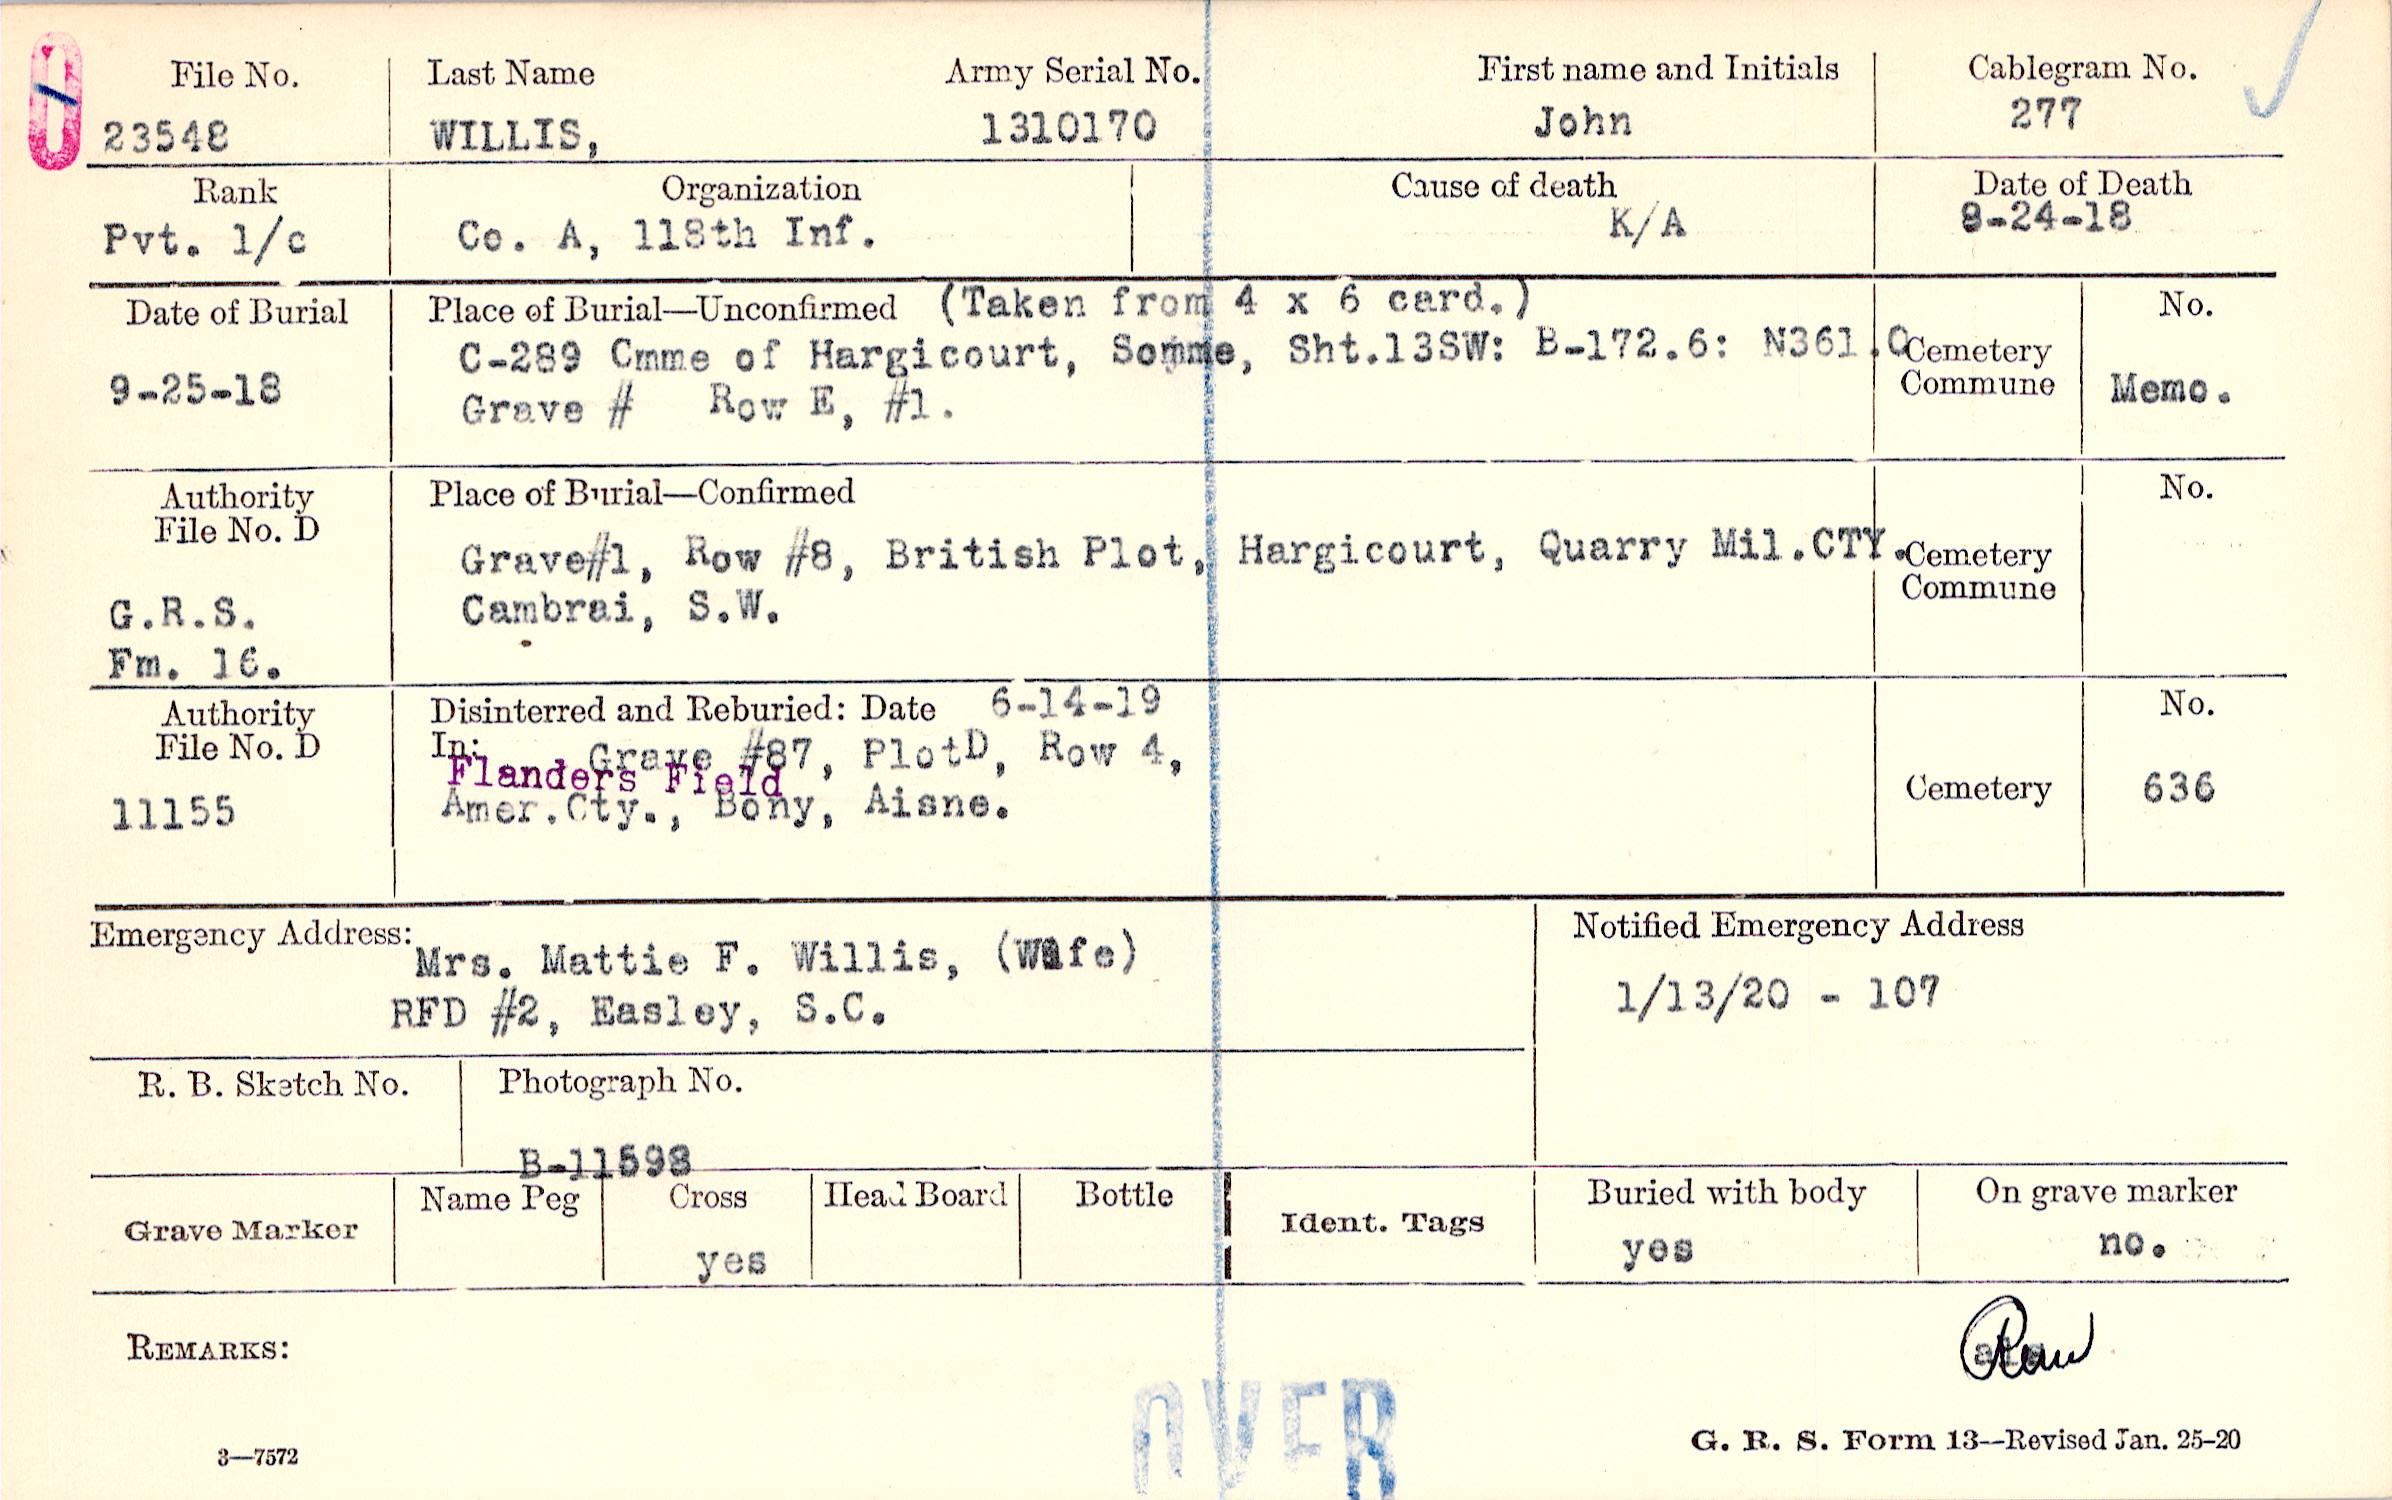 File No. Last Name Army Serial No. First name and Initials Cablegram No.
23548 WILLIS, 1310170 John 277
Rank Organization Cause of death Date of Death
Pvt. 1/c Co. A, 118th Inf. K/A 8-24-18
Date of Burial Place of Burial—Unconfirmed (Taken from 4 x 6 card.) No.
9-25-18 C-289 Cmme of Hargicourt, Somme, Sht.13SW: B-172.6: N361.0 Cemetery
Grave # Row E, #1. Commune Memo.
Authority Place of Burial—Confirmed No.
File No. D
Grave#1, Row #8, British Plot, Hargicourt, Quarry Mil.CTY. Cemetery
G.R.S. Cambrai, S.W. Commune
Fm. 16.
Authority Disinterred and Reburied: Date 6-14-19 No.
File No. D In: Grave #87, PlotD, Row 4,
Flanders Field
11155 Amer.Cty., Bony, Aisne. Cemetery 636
Emergency Address: Notified Emergency Address
Mrs. Mattie F. Willis, (Wife)
RFD #2, Easley, S.C. 1/13/20 - 107
R. B. Sketch No. Photograph No.
B-11598
Grave Marker Name Peg Cross Head Board Bottle Ident. Tags Buried with body On grave marker
yes yes no.
REMARKS:
OVER
3—7572 G. R. S. Form 13—Revised Jan. 25-20